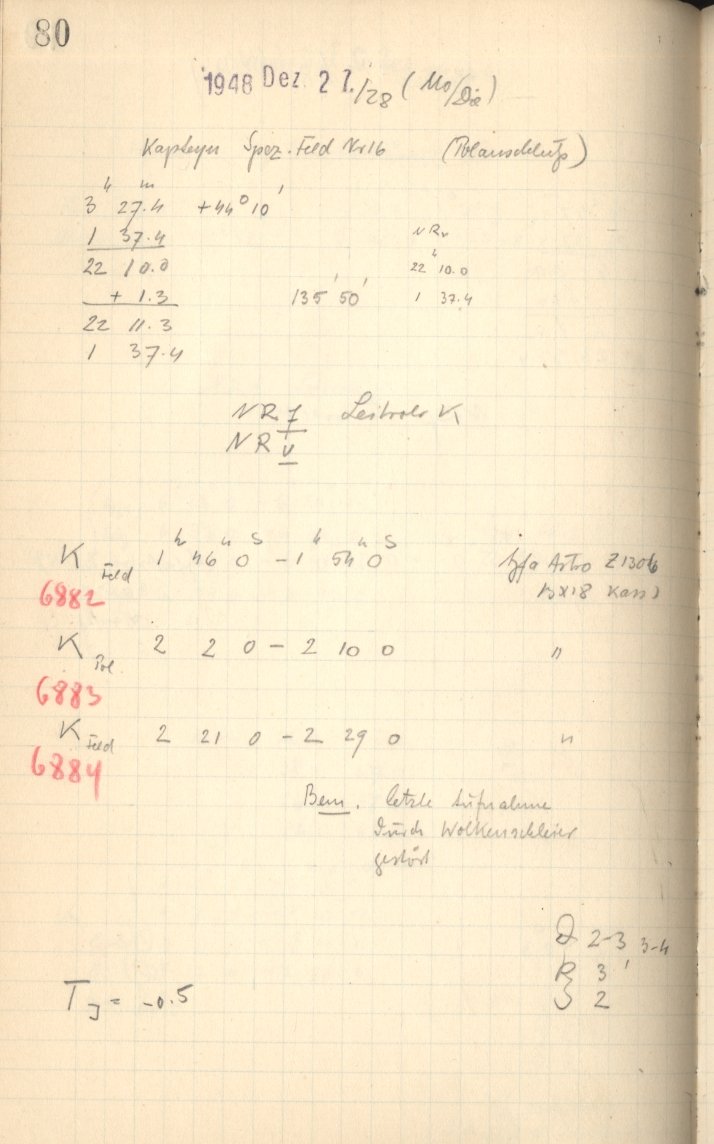 80
1948 Dez. 27./28 (Mo/Die)
Kapteyn Spez. Feld Nr 16 (Polanschluß)
h m
3 27.4 +44° 10'
1 37.4 NRV
22 10.0 22h 10.0
+ 1.3 135° 50' 1 37.4
22 11.3
1 37.4
NR I Leitrohr K
NR V
K Feld 1h 46m 0s – 1h 54m 0s Agfa Astro Z1306
6882 13x18 Kass
K Pol 2 2 0 – 2 10 0 "
6883
K Feld 2 21 0 – 2 29 0 "
6884
Bem. letzte Aufnahme
durch Wolkenschleier
gestört
2-3 3-4
R 3
T J = -0.5 S 2